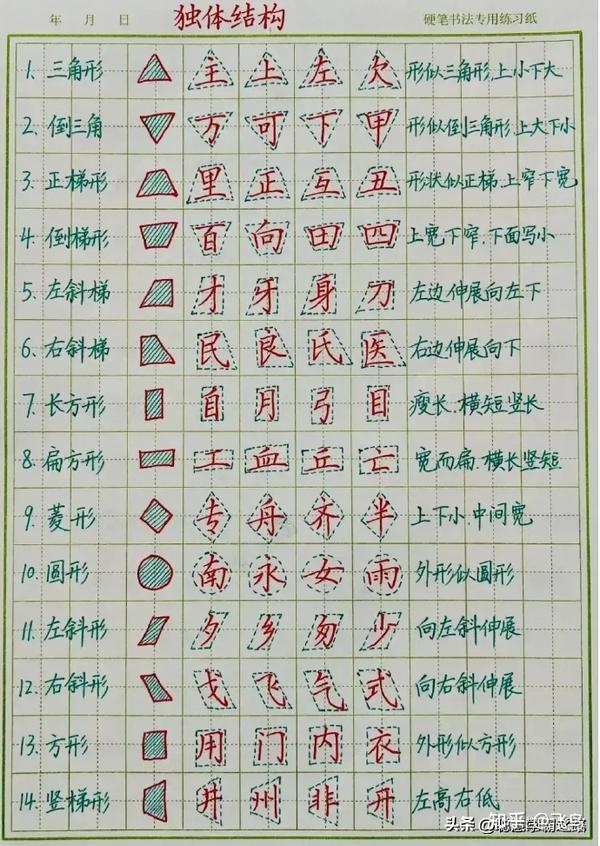 年 月 日 独体结构 硬笔书法专用练习纸
1. 三角形 主 上 左 欠 形似三角形,上小下大
2. 倒三角 万 可 下 甲 形似倒三角形,上大下小
3. 正梯形 里 正 互 丑 形状似正梯,上窄下宽
4. 倒梯形 百 向 田 四 上宽下窄,下面写小
5. 左斜梯 才 牙 身 刀 左边伸展向左下
6. 右斜梯 民 良 氏 医 右边伸展向下
7. 长方形 自 月 弓 目 瘦长,横短竖长
8. 扁方形 工 血 丘 亡 宽而扁,横长竖短
9. 菱形 专 舟 齐 半 上下小,中间宽
10. 圆形 南 永 女 雨 外形似圆形
11. 左斜形 夕 乡 匆 少 向左斜伸展
12. 右斜形 戈 飞 气 式 向右斜伸展
13. 方形 用 门 内 衣 外形似方形
14. 竖梯形 井 州 非 丹 左高右低
知乎 @飞鸟
头条